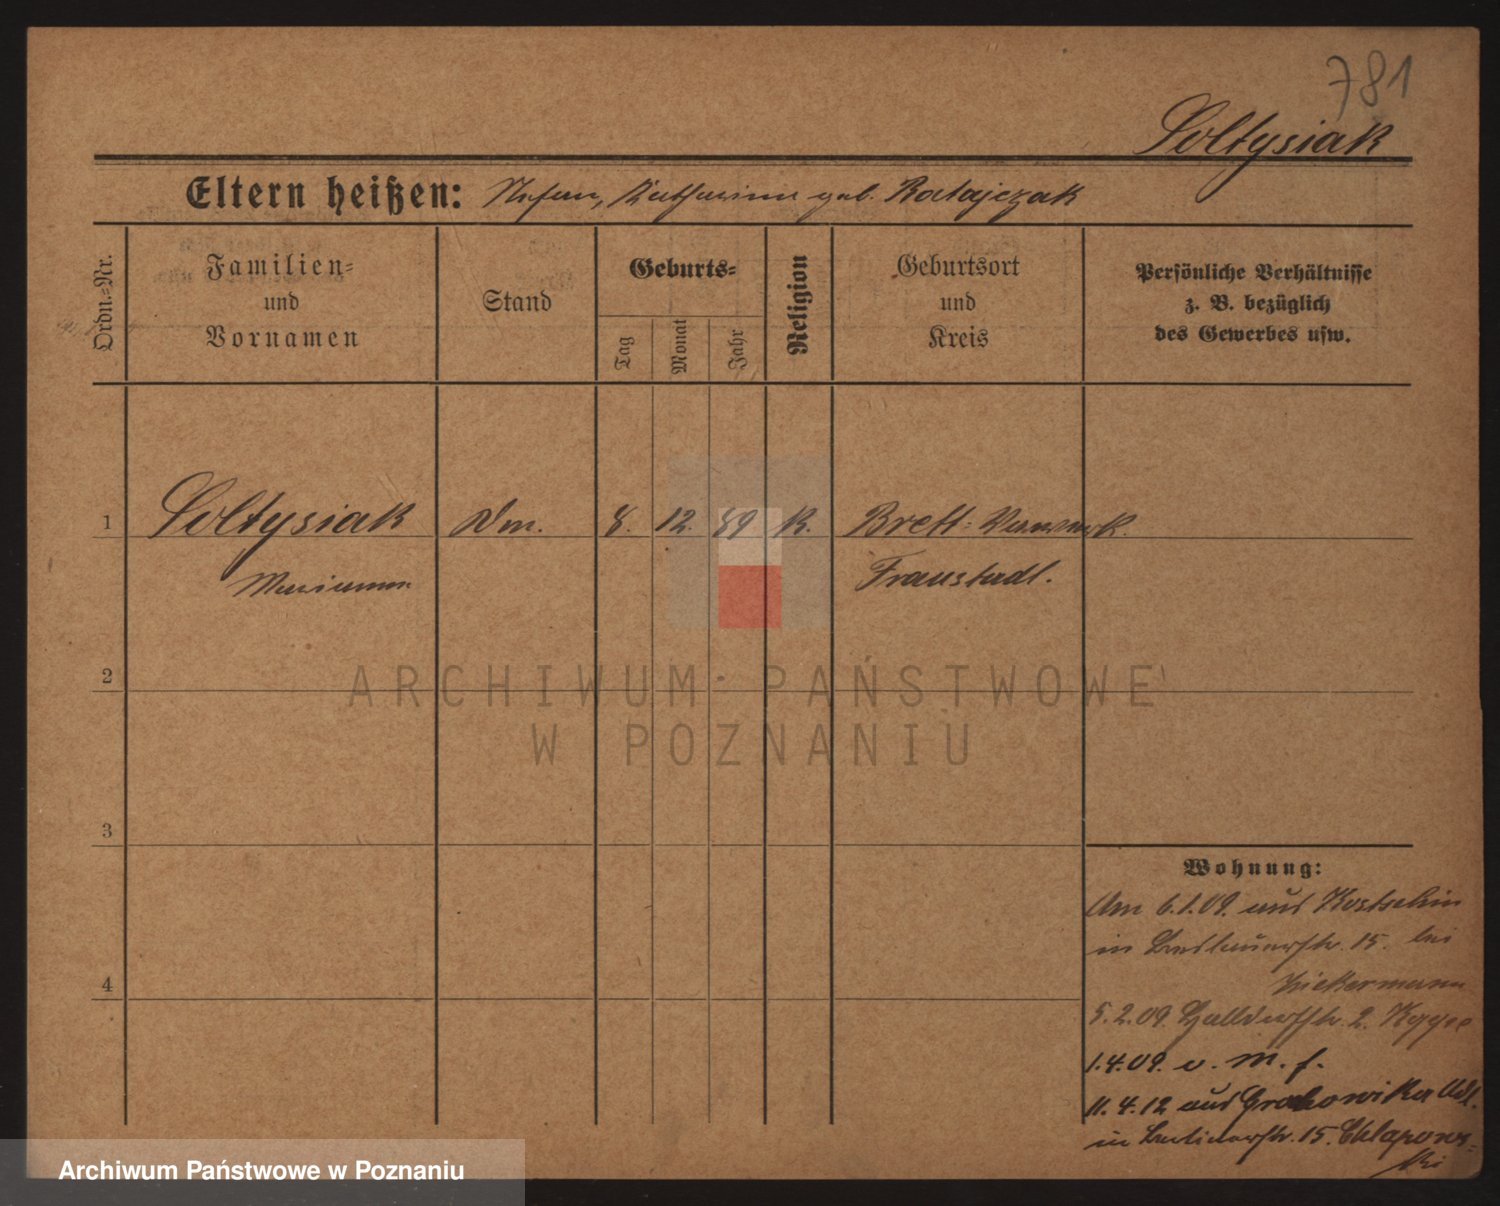 781
Soltysiak
Eltern heißen: Stefan, Katharina geb. Ratajczak
Ordn.-Nr.
Familien-
und
Vornamen
Stand
Geburts-
Tag
Monat
Jahr
Religion
Geburtsort
und
Kreis
Persönliche Verhältnisse
z. B. bezüglich
des Gewerbes usw.
1 Soltysiak Dm. 8. 12. 89 K. Brett-Vorwerk.
Marianna Fraustadt.
2
3
4
Wohnung:
Am 6.1.09. aus Kostschin
in 15. bei
5.2.09. 2.
1.4.09. v. m. f.
11.4.12 aus Grabowitka Adl.
in 15. Chlapows-
ki
ARCHIWUM PAŃSTWOWE
W POZNANIU
Archiwum Państwowe w Poznaniu